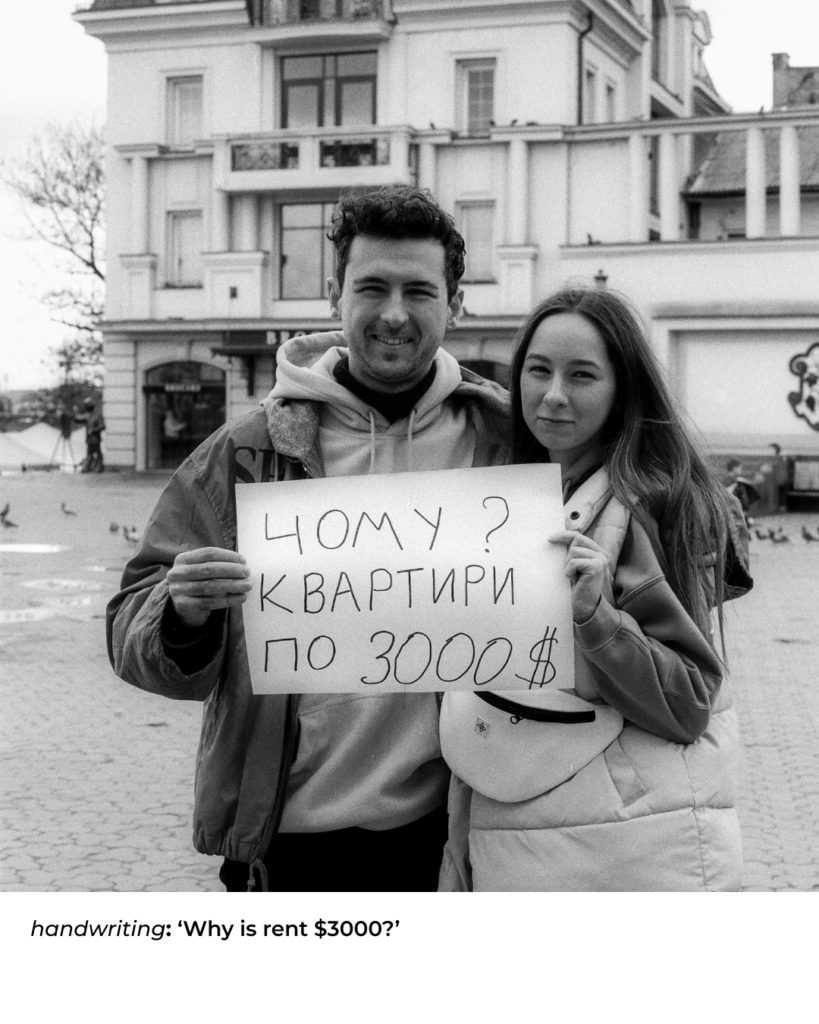 ЧОМУ ?
КВАРТИРИ
ПО 3000 $
handwriting: ‘Why is rent $3000?’